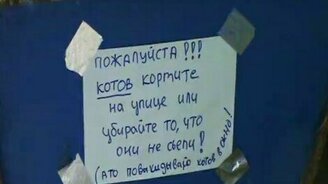 ПОЖАЛУЙСТА !!!
КОТОВ КОРМИТЕ
НА УЛИЦЕ ИЛИ
УБИРАЙТЕ ТО, ЧТО
ОНИ НЕ СЪЕЛИ!
(А ТО ПОВЫКИДЫВАЮ КОТОВ В ОКНО!